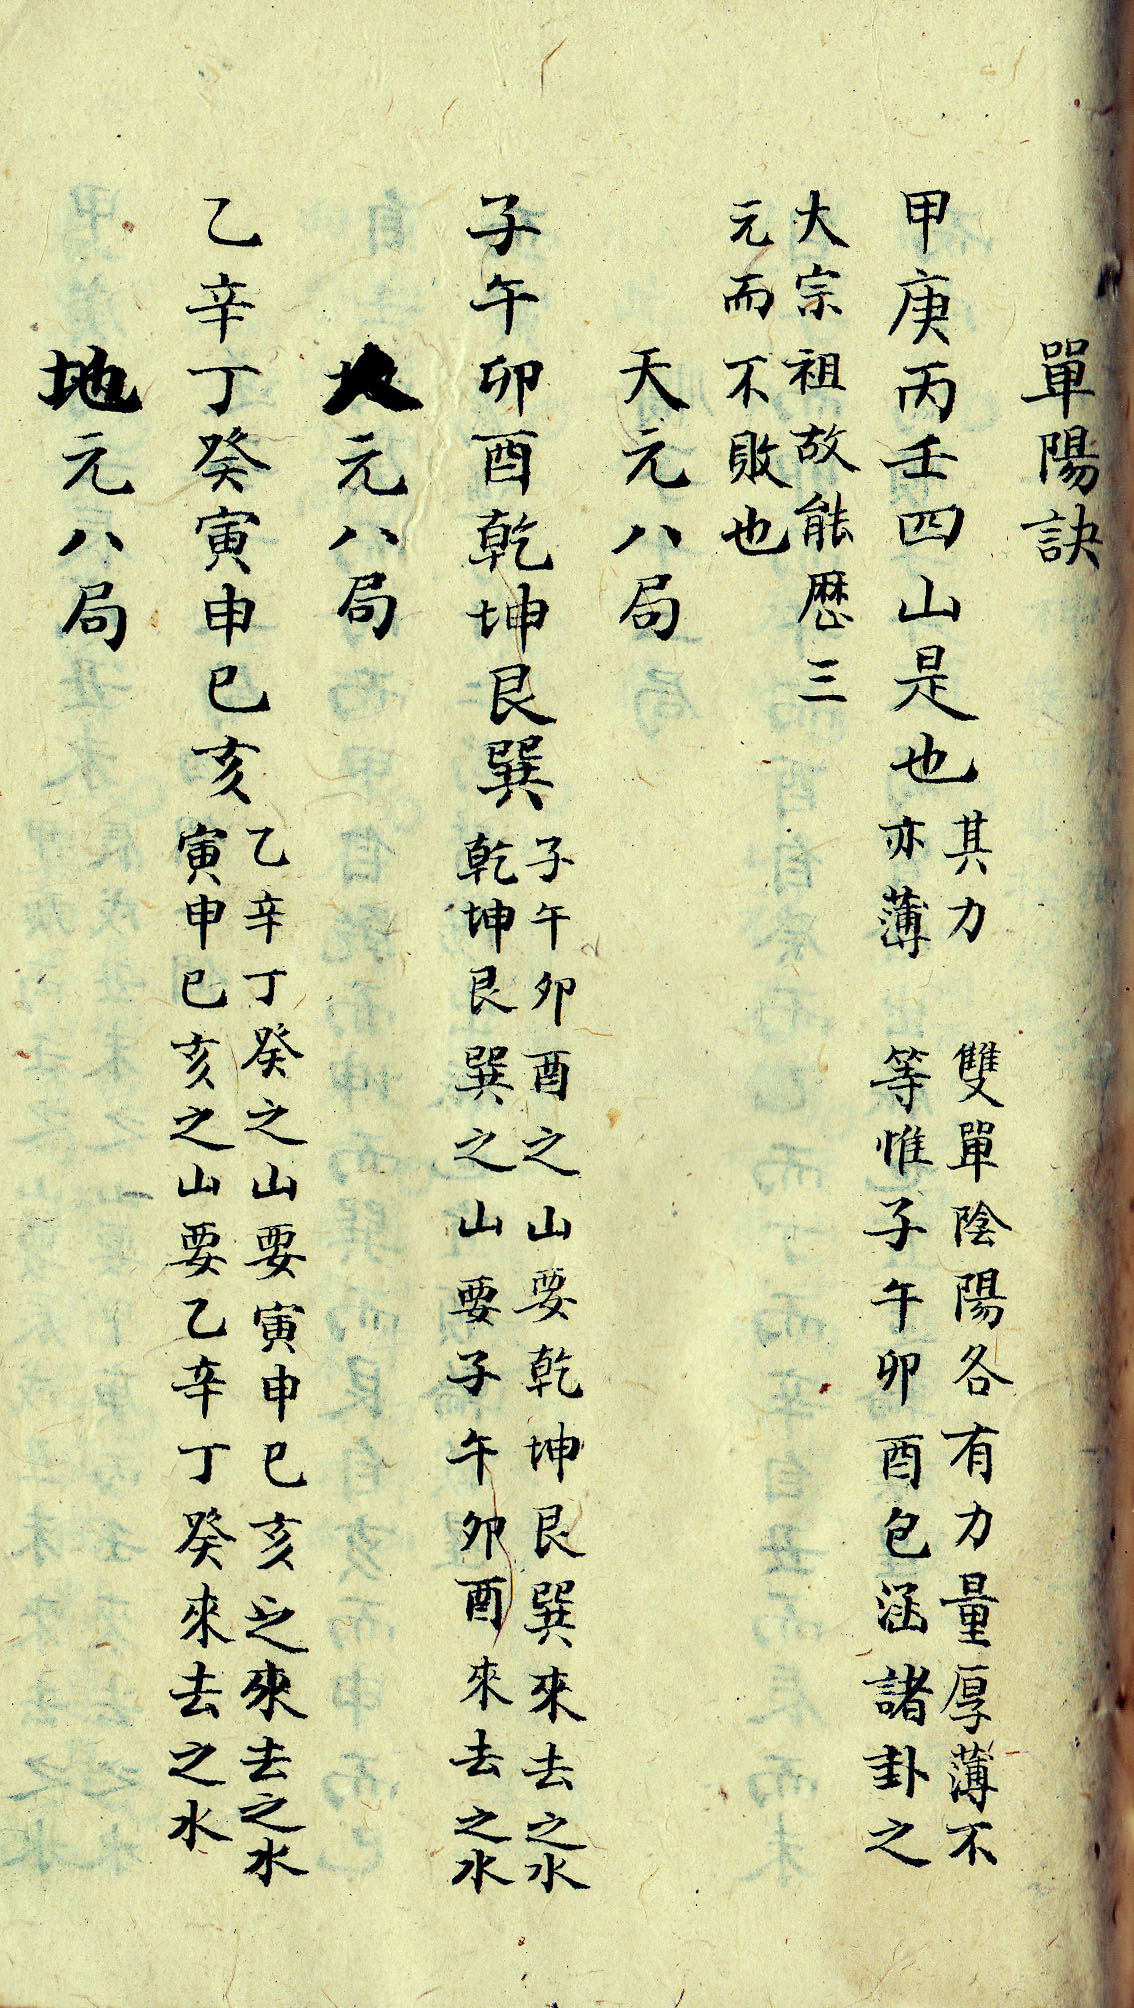 單陽訣
甲庚丙壬四山是也
其力
亦薄
雙單陰陽各有力量厚薄不
等惟子午卯酉包涵諸卦之
大宗祖故能歷三
元而不敗也
天元八局
子午卯酉乾坤艮巽
子午卯酉之山要乾坤艮巽來去之水
乾坤艮巽之山要子午卯酉來去之水
人元八局
乙辛丁癸寅申巳亥
乙辛丁癸之山要寅申巳亥之來去之水
寅申巳亥之山要乙辛丁癸來去之水
地元八局